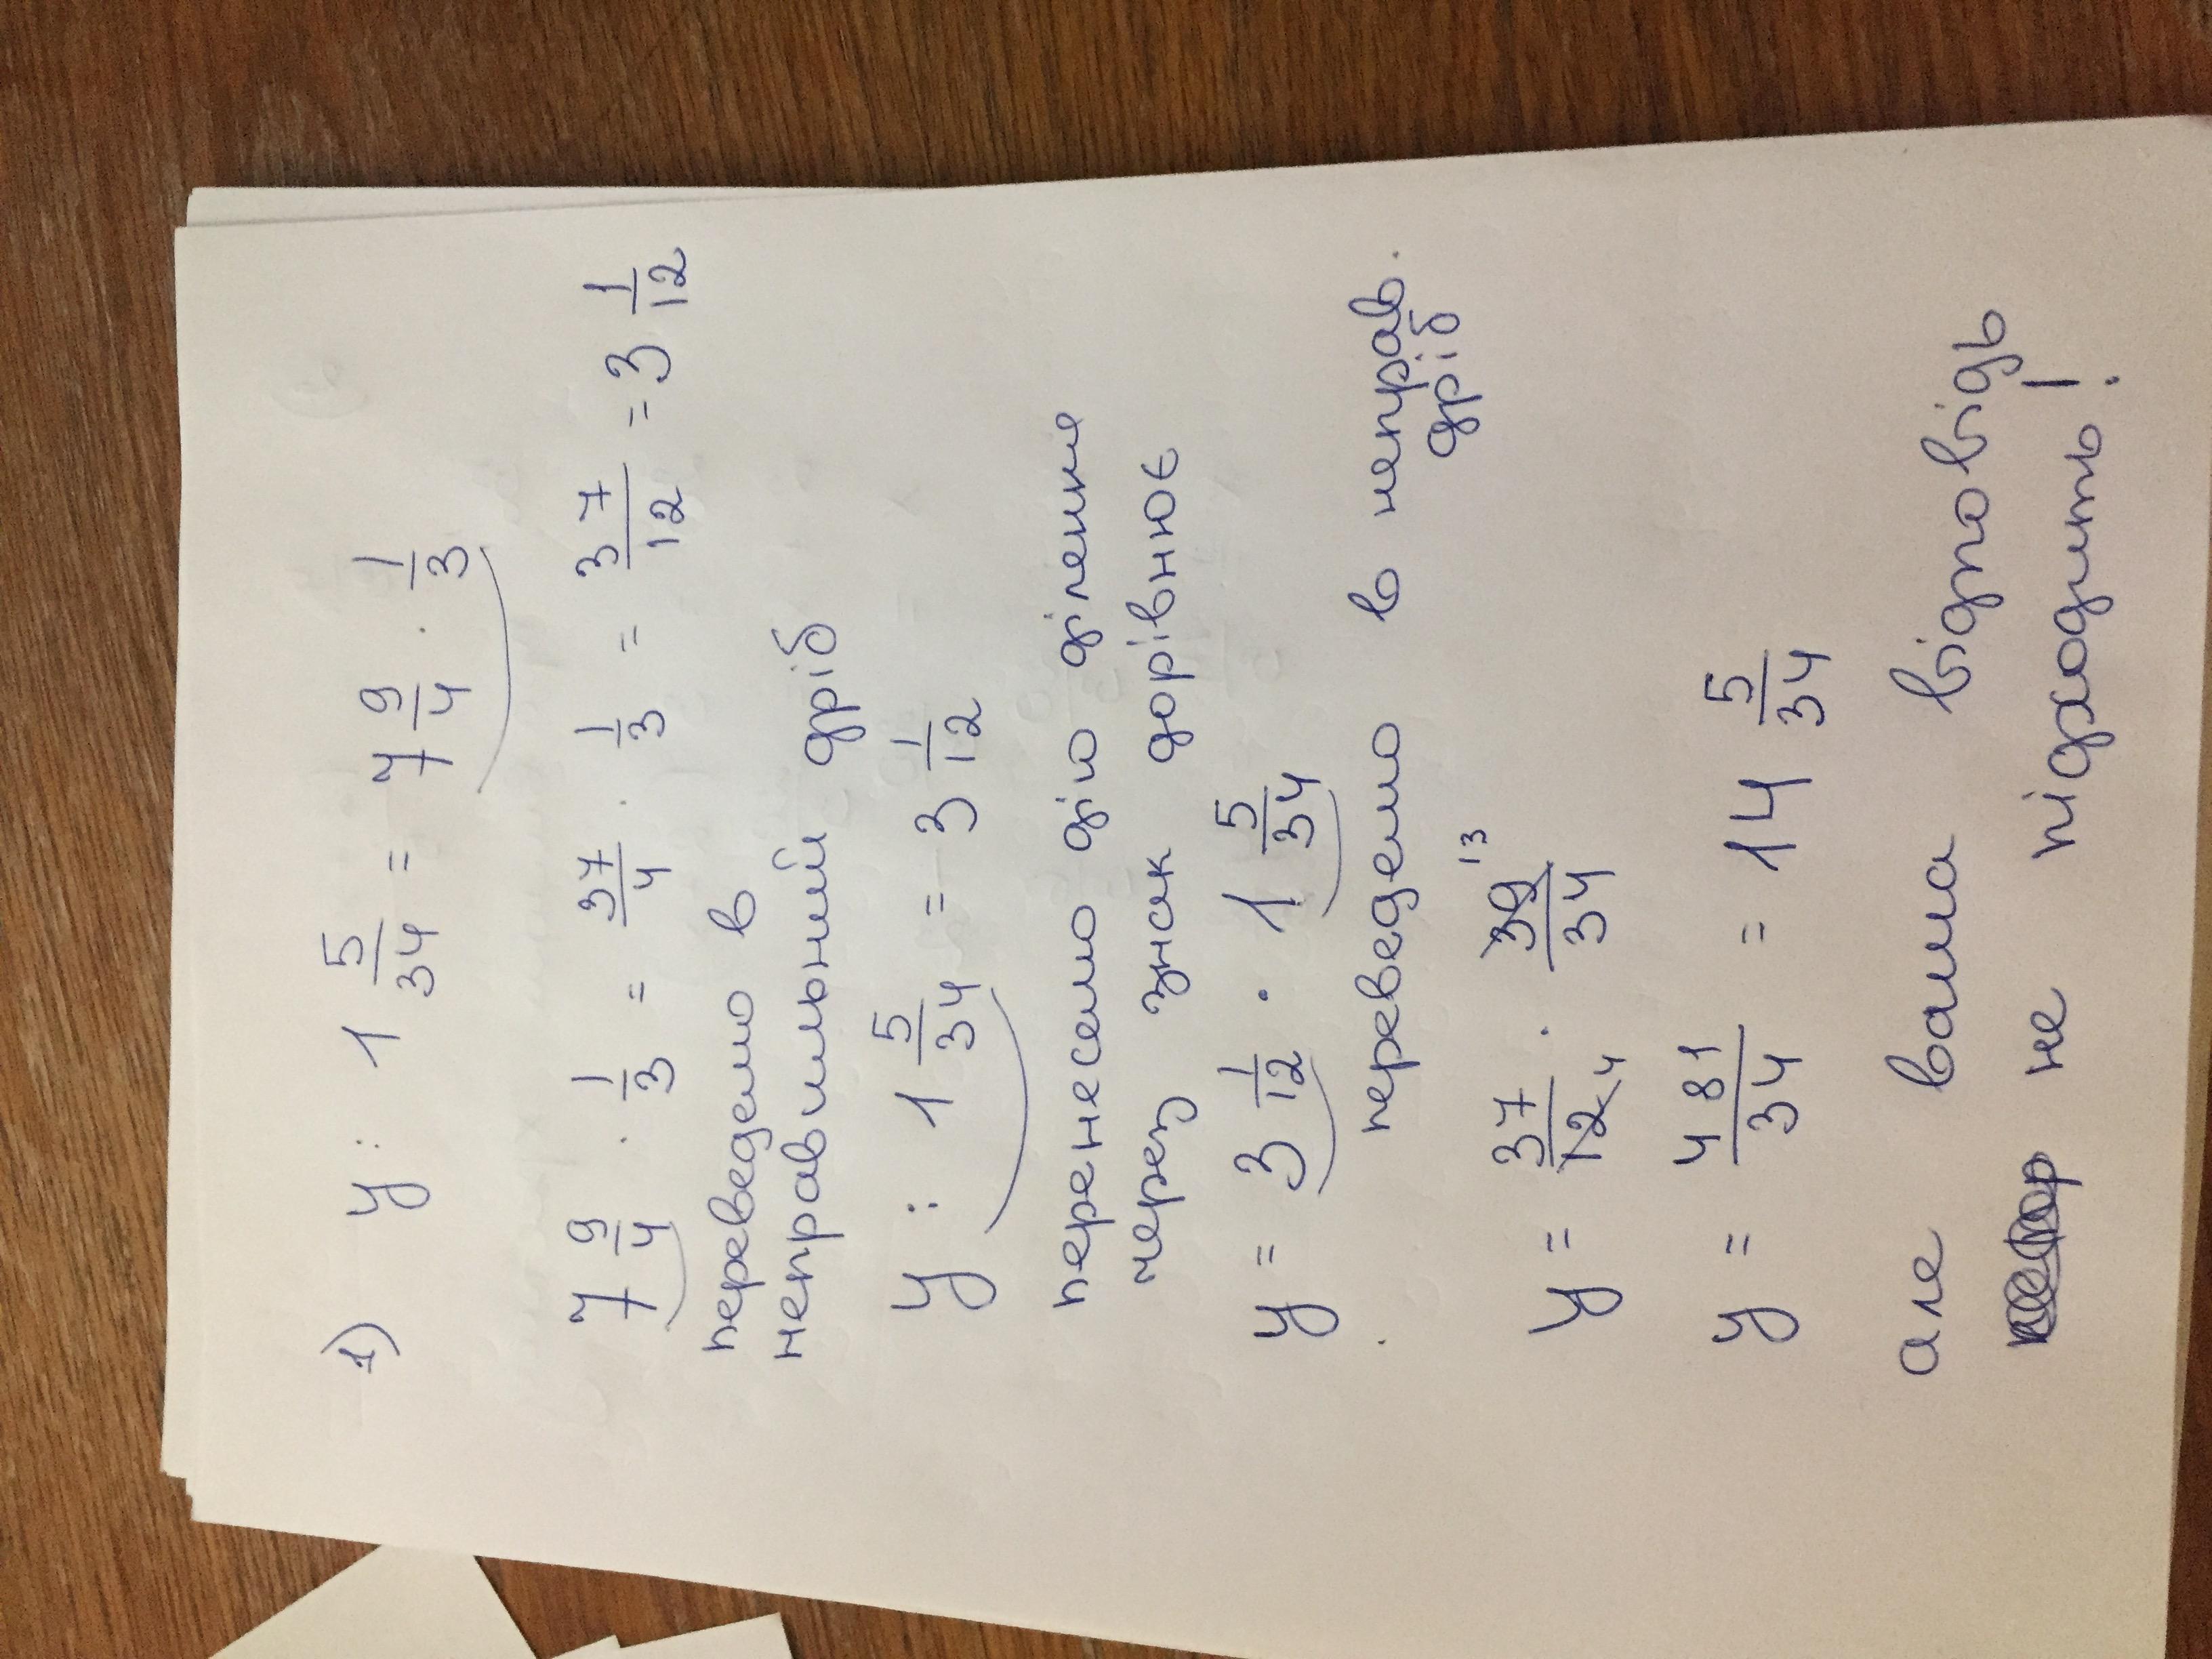 1) y : 1 5/34 = 7 9/4 · 1/3
7 9/4 · 1/3 = 37/4 · 1/3 = 37/12 = 3 1/12
переведемо в
неправильний дріб
y : 1 5/34 = 3 1/12
перенесемо дію ділення
через знак дорівнює
y = 3 1/12 · 1 5/34
переведемо в неправ.
дріб
y = 37/12 4 · 39/34 13
y = 481/34 = 14 5/34
але ваша відповідь
не підходить!